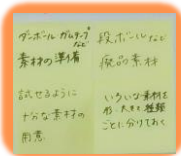 ダンボール ガムテープ
など
素材の準備
試せるように
十分な素材の
用意
段ボールなど
廃品素材
いろいろな素材を
形、大きさ、種類
ごとに分けておく